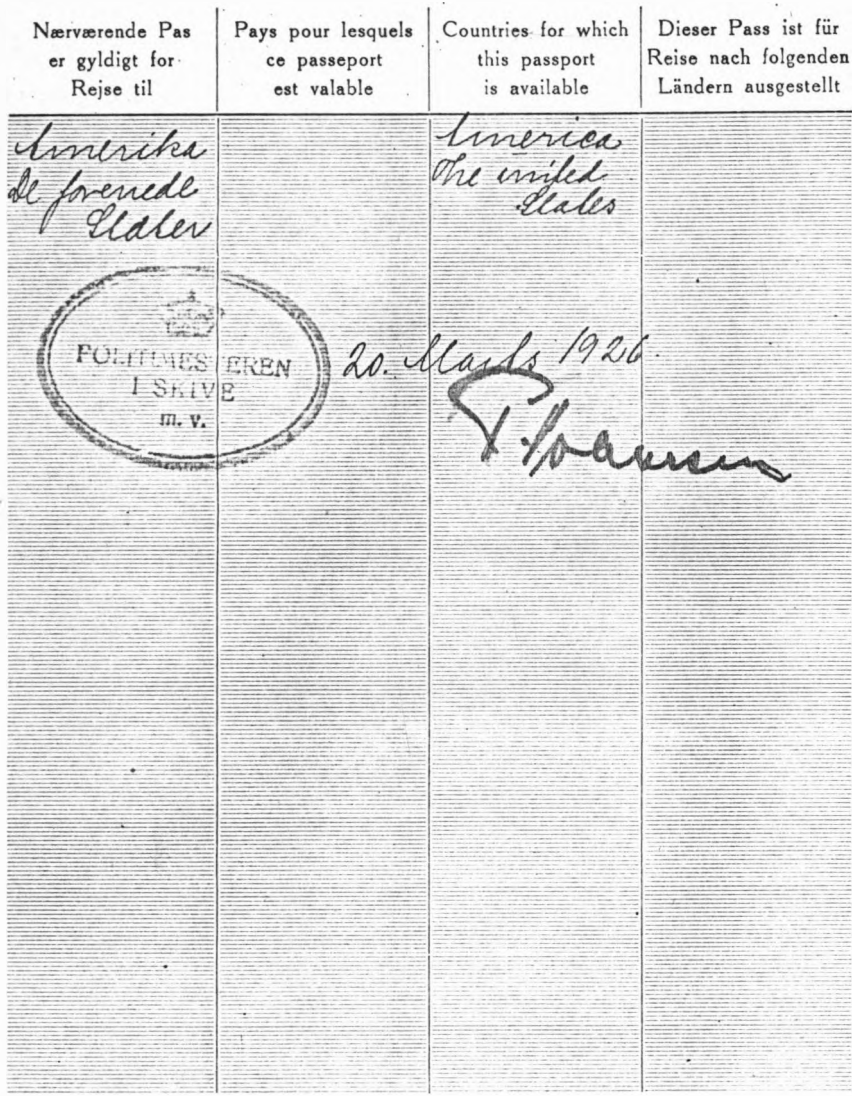 Nærværende Pas
er gyldigt for
Rejse til
Pays pour lesquels
ce passeport
est valable
Countries for which
this passport
is available
Dieser Pass ist für
Reise nach folgenden
Ländern ausgestellt
Amerika
De forenede
Stater
America
The united
States
POLITIMESTEREN
I SKIVE
m. v.
20. Marts 1926.